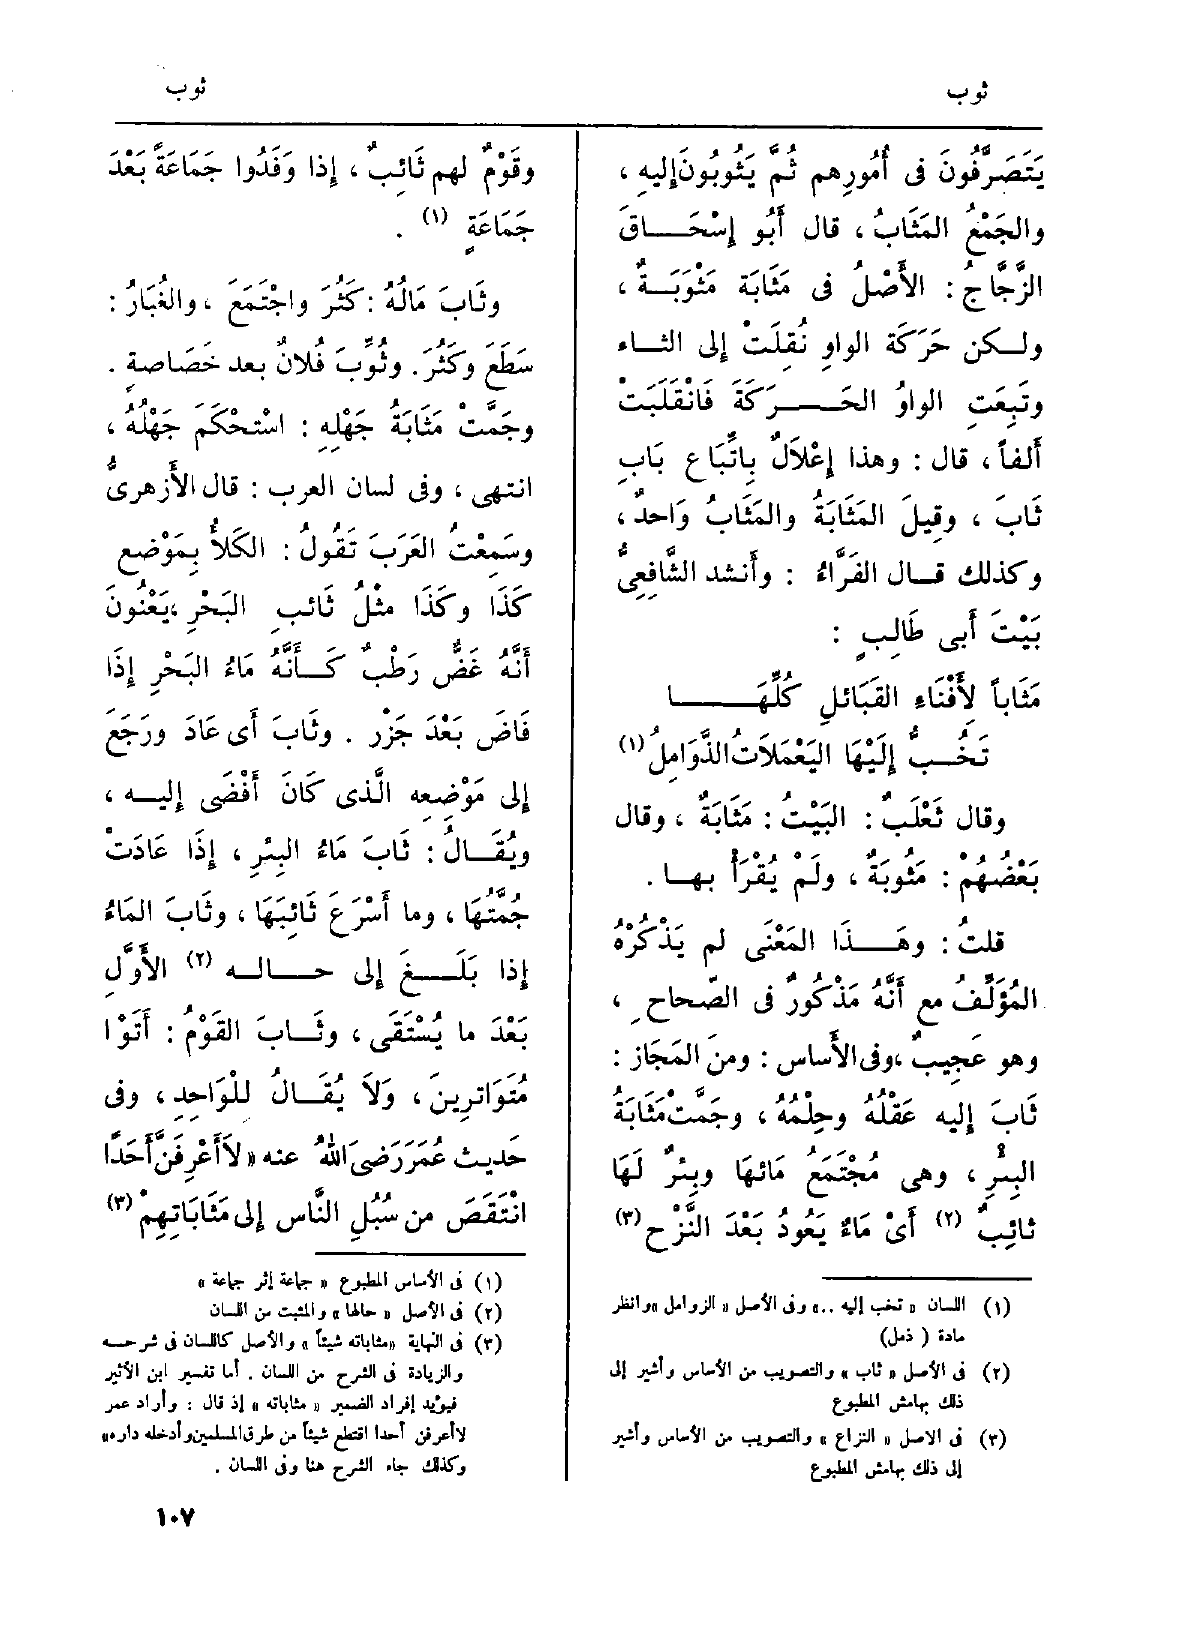 ثوب
يَتَصَرَّفُونَ فى أُمُورِهم ثُمَّ يَثُوبُونَ إليهِ ،
والجَمْعُ المَثَابُ ، قال أَبُو إِسْحَاقَ
الزَّجَّاجُ : الأَصْلُ فى مَثَابَة مَثْوَبَةٌ ،
ولكن حَرَكَة الواوِ نُقِلَتْ إلى الثاء
وتَبِعَتِ الواوُ الحَرَكَةَ فَانْقَلَبَتْ
أَلفاً ، قال : وهذا إعْلَالٌ بِاتِّبَاع بَابِ
ثَابَ ، وقِيلَ المَثَابَةُ والمَثَابُ وَاحدٌ ،
وكذلك قال الفَرَّاءُ : وأَنشد الشَّافِعِىُّ
بَيْتَ أَبى طَالِبٍ :
مَثَاباً لأَفْنَاءِ القَبَائلِ كُلِّهَا
تَخُبُّ إِلَيْهَا اليَعْمَلَاتُ الذَّوَامِلُ (١)
وقال ثَعْلَبٌ : البَيْتُ : مَثَابَةٌ ، وقال
بَعْضُهُمْ : مَثُوبَةٌ ، ولَمْ يُقْرَأْ بها .
قلتُ : وهَذَا المَعْنَى لم يَذْكُرْهُ
المُؤَلِّفُ مع أَنَّهُ مَذْكُورٌ فى الصّحاحِ ،
وهو عَجِيبٌ ، وفى الأَساس : ومنَ المَجَاز :
ثَابَ إليه عَقْلُهُ وحِلْمُهُ ، وجَمَّتْ مَثَابَةُ
البِئْرِ ، وهى مُجْتَمَعُ مَائهَا وبِئْرٌ لَهَا
ثائِبٌ (٢) أَىْ مَاءٌ يَعُودُ بَعْدَ النَّزْح (٣)
(١) اللسان « تخب إليه .. » وفى الأصل « الزوامل » وانظر
مادة ( ذمل )
(٢) فى الأصل « ثاب » والتصويب من الأساس وأشير إلى
ذلك بهامش المطبوع
(٣) فى الاصل « النزاع » والتصويب من الأساس وأشير
إلى ذلك بهامش المطبوع
ثوب
وقَوْمٌ لهم ثَائِبٌ ، إذا وَفَدُوا جَمَاعَةً بَعْدَ
جَمَاعَةٍ (١) .
وثَابَ مَالُهُ : كَثُرَ واجْتَمَعَ ، والغُبَارُ :
سَطَعَ وكَثُرَ. وثُوِّبَ فُلانٌ بعد خَصَاصةٍ .
وجَمَّتْ مَثَابَةُ جَهْلِهِ : اسْتَحْكَمَ جَهْلُهُ ،
انتهى ، وفى لسان العرب : قال الأَزهرىُّ
وسَمِعْتُ العَرَبَ تَقُولُ : الكَلأُ بمَوْضعِ
كَذَا وكَذَا مثْلُ ثَائبِ البَحْرِ ، يَعْنُونَ
أَنَّهُ غَضٌّ رَطْبٌ كَأَنَّهُ مَاءُ البَحْرِ إذَا
فَاضَ بَعْدَ جَزْر . وثَابَ أَى عَادَ ورَجَعَ
إلى مَوْضِعِه الَّذى كَانَ أَفْضَى إليه ،
ويُقَالُ : ثَابَ مَاءُ البِئرِ ، إِذَا عَادَتْ
جُمَّتُهَا ، وما أَسْرَعَ ثَائِبَهَا ، وثَابَ المَاءُ
إذا بَلَغَ إلى حاله (٢) الأَوَّلِ
بَعْدَ ما يُسْتَقَى ، وثَابَ القَوْمُ : أَتَوْا
مُتَوَاتِرِينَ ، وَلَا يُقَالُ للْوَاحِدِ ، وفى
حَديث عُمَرَ رَضىَ اللهُ عنه « لَا أَعْرِفَنَّ أَحَدًا
انْتَقَصَ من سُبُلِ النَّاسِ إلى مَثَابَاتِهِمْ (٣)
(١) فى الأساس المطبوع « جماعة إثر جماعة »
(٢) فى الأصل « حالها » والمثبت من اللسان
(٣) فى النهاية « مثاباته شيئاً » والأصل كاللسان فى شرحه
والزيادة فى الشرح من اللسان . أما تفسير ابن الأثير
فيؤيد إفراد الضمير « مثاباته » إذ قال : وأراد عمر
لاأعرفن أحدا اقتطع شيئاً من طرق المسلمين وأدخله داره »
وكذلك جاء الشرح هنا وفى اللسان .
١٠٧